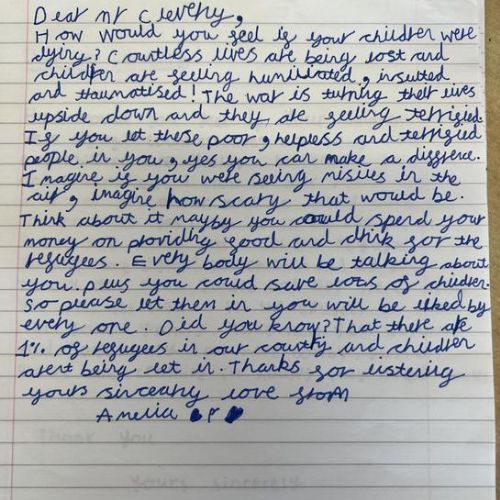 Dear mr Cleverly,
How would you feel if your children were
dying? Countless lives are being lost and
children are feeling humiliated, insulted
and traumatised! The war is turning their lives
upside down and they are feeling terrified.
If you let these poor, helpless and terrified
people in you, yes you can make a diffrence.
Imagine if you were seeing misiles in the
air, imagine how scary that would be.
Think about it mayby you could spend your
money on providing food and drink for the
refugees. Every body will be talking about
you. plus you could save lots of children.
so please let them in you will be liked by
every one. Did you know? That there are
1% of refugees in our country and children
arent being let in. Thanks for listering
yours sincerly love from
Amelia P
Thank you
yours sincerely